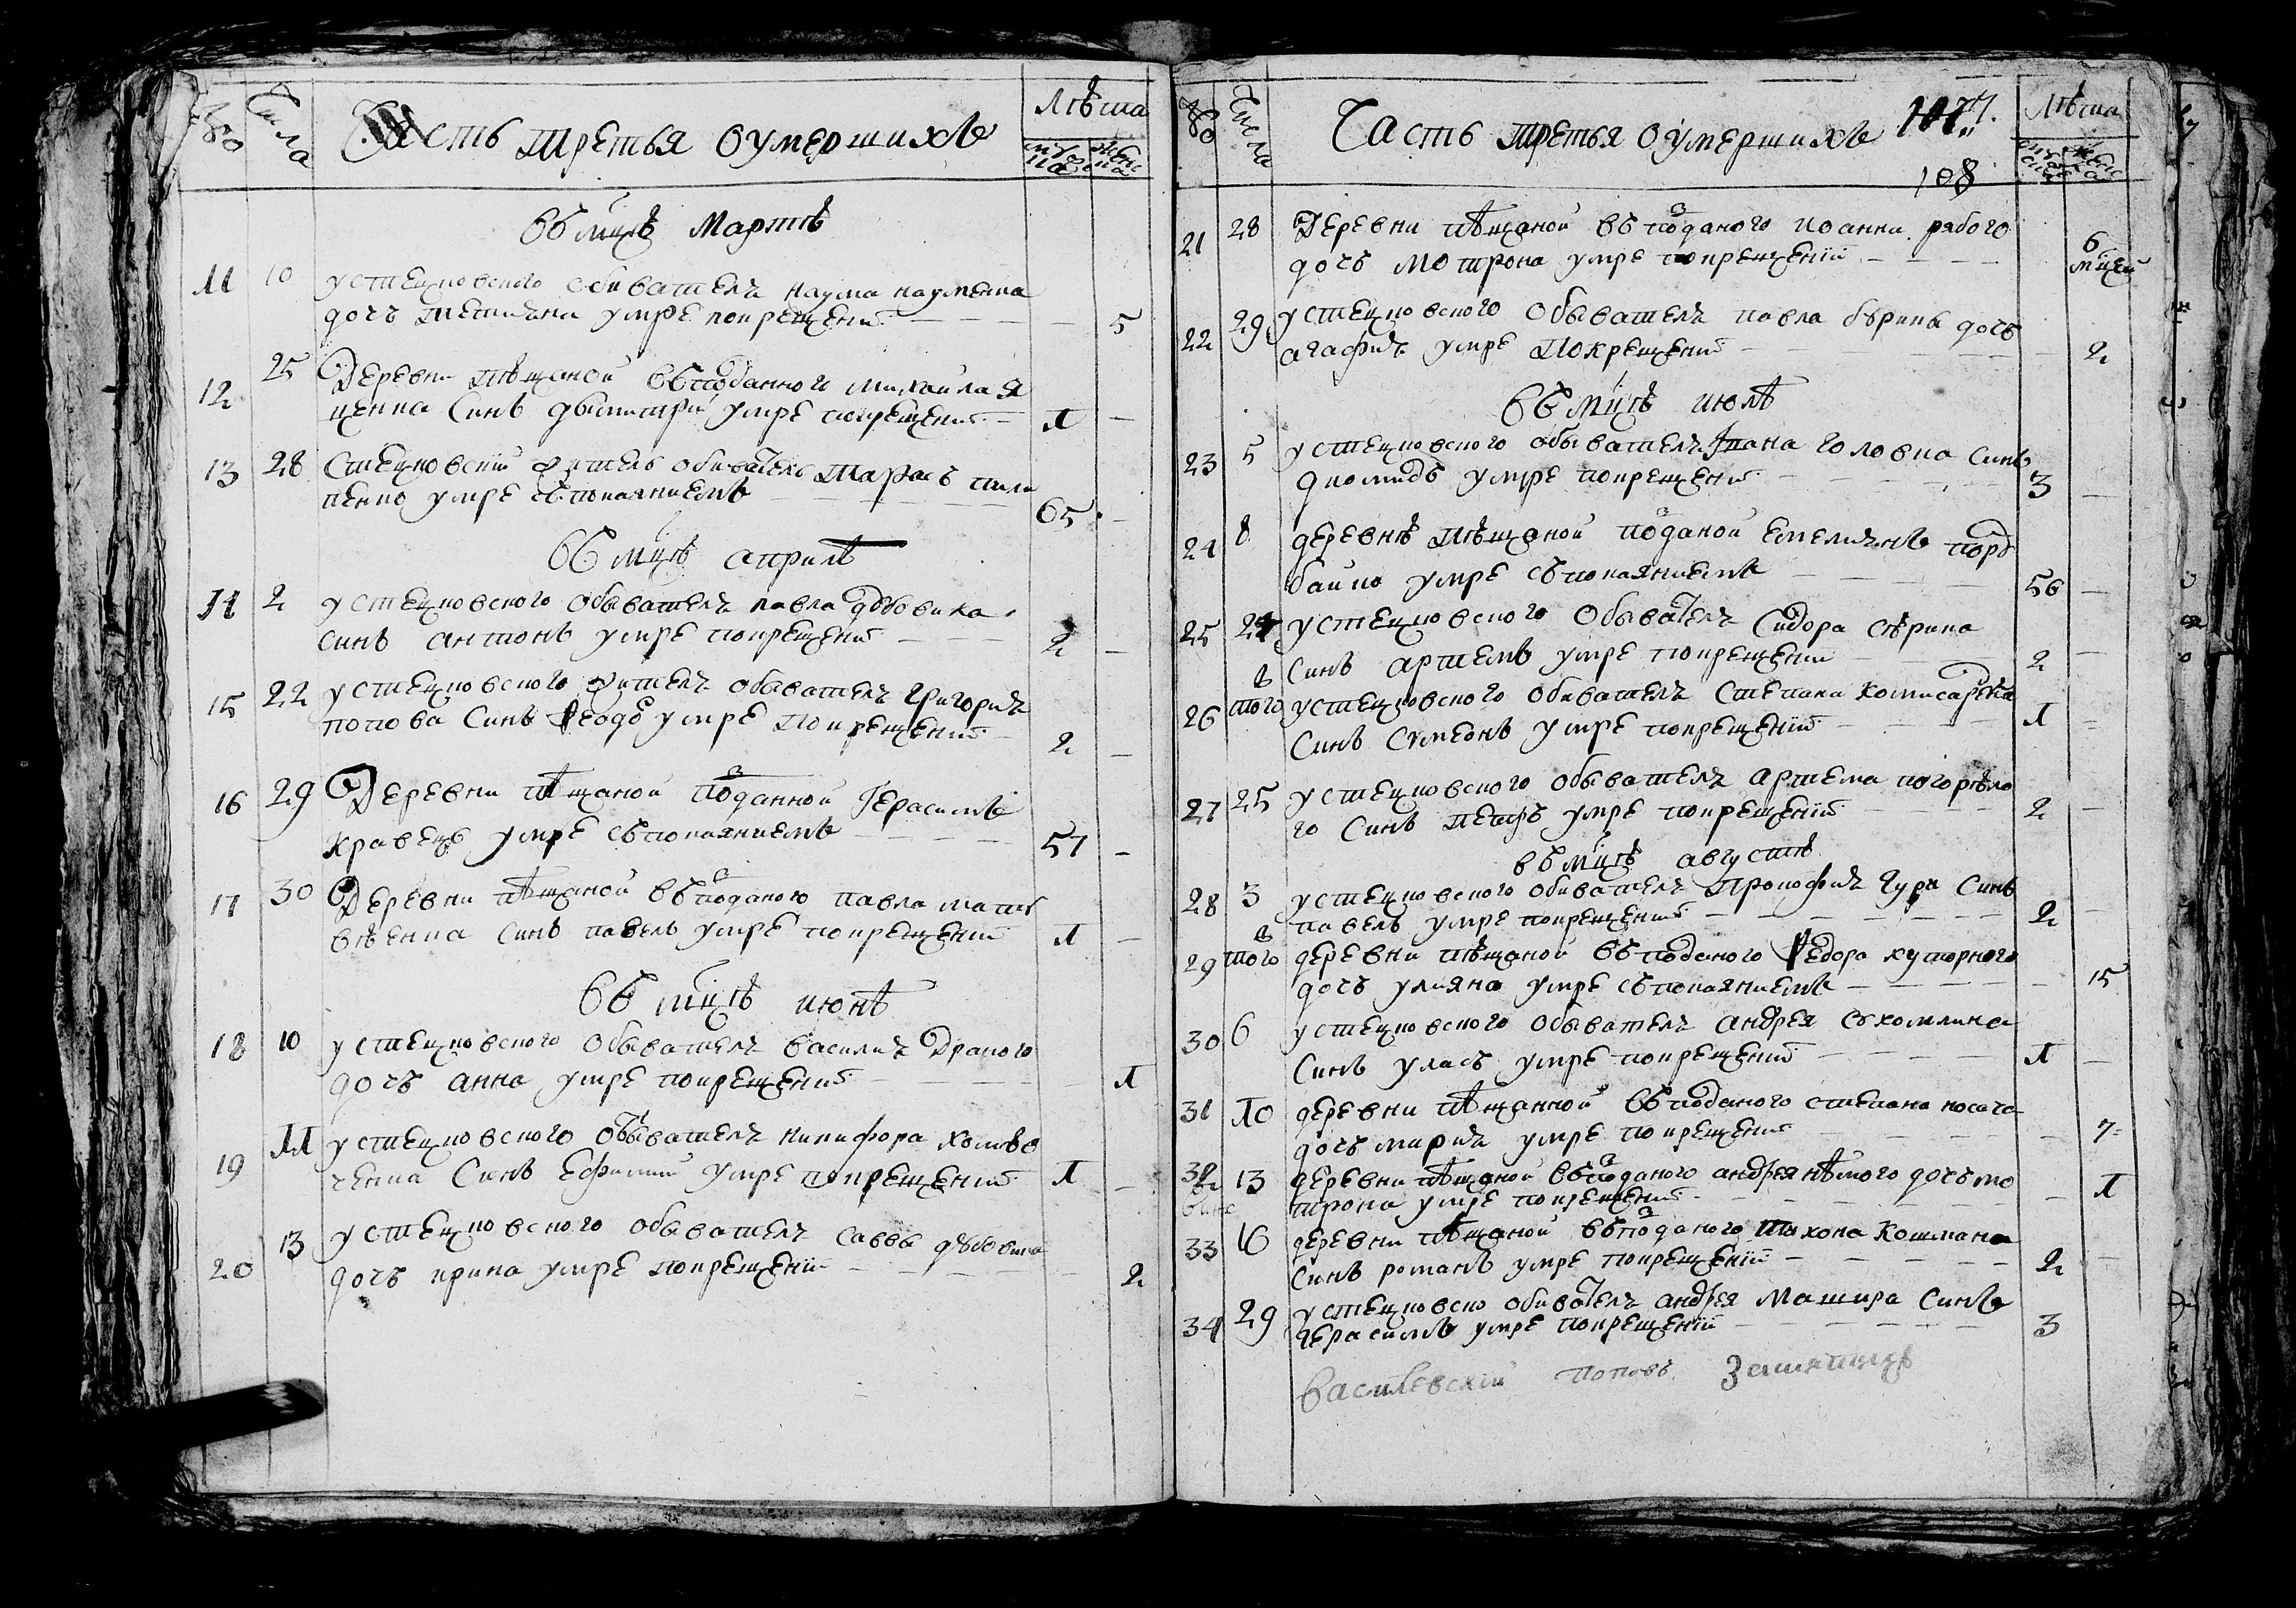 № Числа Часть третья оумершихъ Лѣта
въ мцѣ Мартѣ
11 10 устецковского обивателя наума науменка
дочъ умре покрещении 5
12 25 Деревни пѣщаной въподанного михайла я
ценка Синъ дьмитрий умре покрещении 1
13 28 Стецковский житель обиватель Тарасъ пили
пенко умре съпокаяниемъ 65
въ мцѣ априлѣ
14 2 устецковского обывателя павла дубовика
синъ антонъ умре покрещении 2
15 22 устецковского жителя обывателя григория
попова Синъ Феодо умре покрещении 2
16 29 Деревни пѣщаной поданной Герасимъ
кравецъ умре съпокаяниемъ 57
17 30 Деревни пѣщаной въподаного павла мат
вѣенка синъ павелъ умре покрещении 1
въ мцѣ июнѣ
18 10 устецковского обывателя василия Драного
дочъ анна умре покрещении 1
19 11 устецковского обывателя никифора
ченка Синъ Ефимий умре покрещении 1
20 13 устецковского обывателя саввы дубовика
дочъ ирина умре покрещении 2
№ Числа Часть третья оумершихъ Лѣта
108
21 28 Деревни пѣщаной въподаного иоанна рабого
дочъ мотрона умре покрещении 6 мцей
22 29 устецковского обывателя павла бурика дочъ
агафия умре покрещении 2
въ мцѣ июлѣ
23 5 устецковского обывателя головка синъ
диомидъ умре покрещении 3
24 8 деревнѣ пѣщаной поданой Емелиянъ
умре съпокаяниемъ 56
25 24 устецковского обывателя Сидора сѣрика
Синъ артемъ умре покрещении 2
26 того устецковского обивателя Степана комисаренка
Синъ Сумеонъ умре покрещении 1
27 25 устецковского обывателя артема погорѣло
го Синъ петръ умре покрещении 2
въ мцѣ августѣ
28 3 устецковского обивателя Прокофия Чури Синъ
павелъ умре покрещении 2
29 того деревни пѣщаной въподаного Федора хуторного
дочъ улияна умре съпокаяниемъ 15
30 6 устецковского обывателя андрея сухомлина
Синъ уласъ умре покрещении 1
31 10 деревни пѣщанной въподаного степана носача
дочъ мария умре покрещении 7
32 13 деревни пѣщаной въподаного андрея нѣмого дочъ мо
трона умре покрещении 1
33 16 деревни пѣщаной въподаного Тихона Кошмана
Синъ романъ умре покрещении 2
34 29 устецковско обивателя андрея Машира Синъ
Герасимъ умре покрещении 3
василевский поповъ